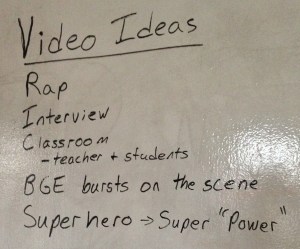 Video Ideas
Rap
Interview
Classroom
- teacher + students
BGE bursts on the scene
Superhero → Super "Power"